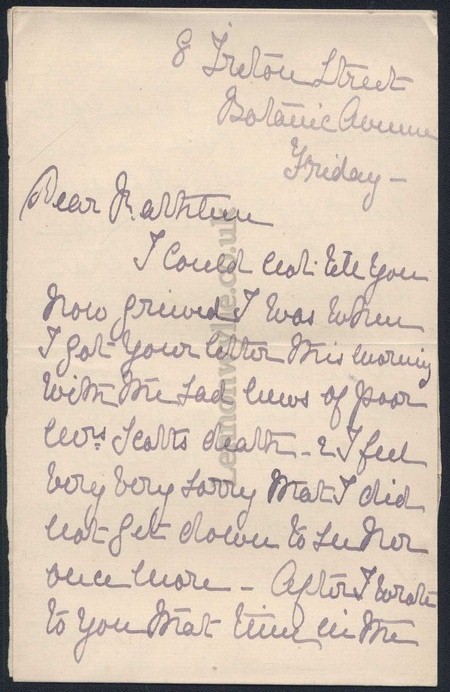 8 Ireton Street
Botanic Avenue
Friday —
Dear
I could not tell you
how grieved I was when
I got your letter this morning
with the sad news of poor
Mrs Scotts death - & I feel
very very sorry that I did
not get down to see her
once more - After I wrote
to you that time in the